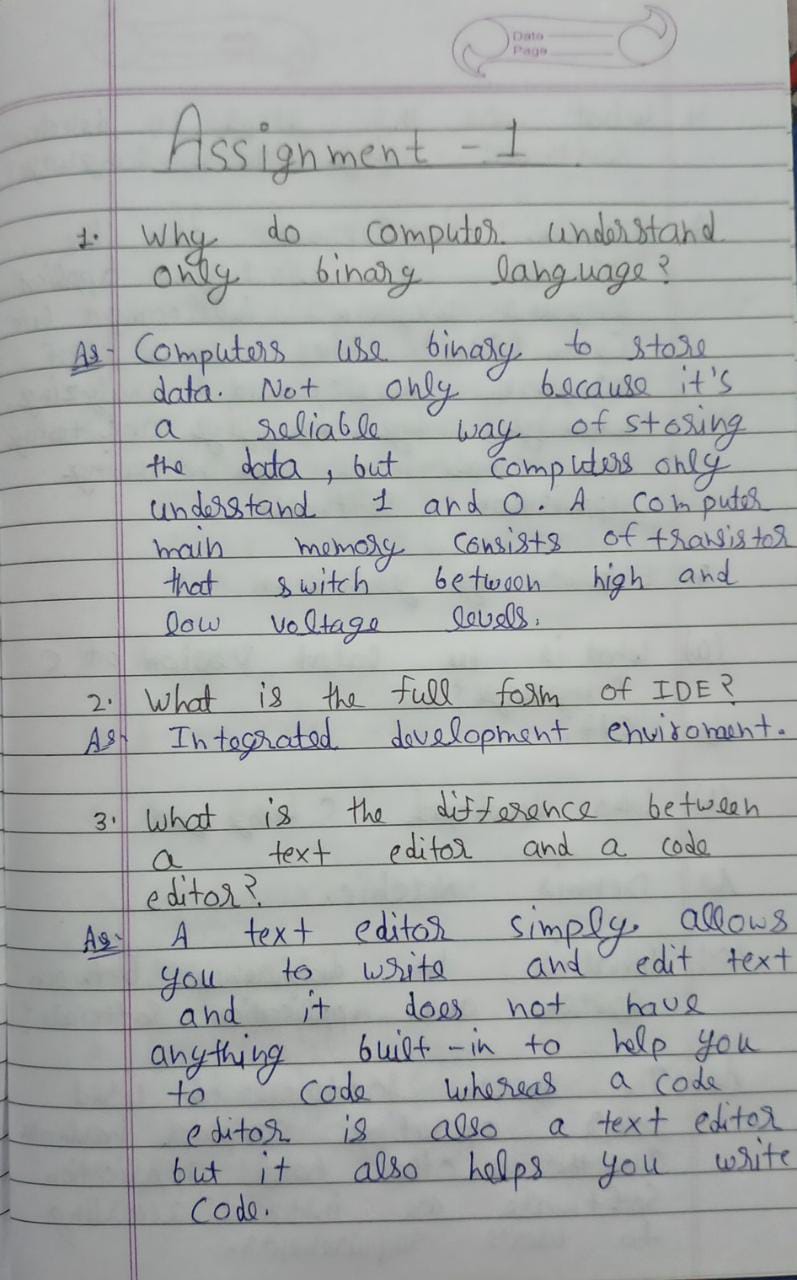 Date
Page
Assignment - 1
1. Why do computer understand
only binary language?
As- Computers use binary to store
data. Not only because it's
a reliable way of storing
the data, but computers only
understand 1 and 0. A computer
main memory consists of transistor
that switch between high and
low voltage levels.
2. What is the full form of IDE?
As- Integrated development enviroment.
3. What is the difference between
a text editor and a code
editor?
As- A text editor simply allows
you to write and edit text
and it does not have
anything built-in to help you
to code whereas a code
editor is also a text editor
but it also helps you write
code.